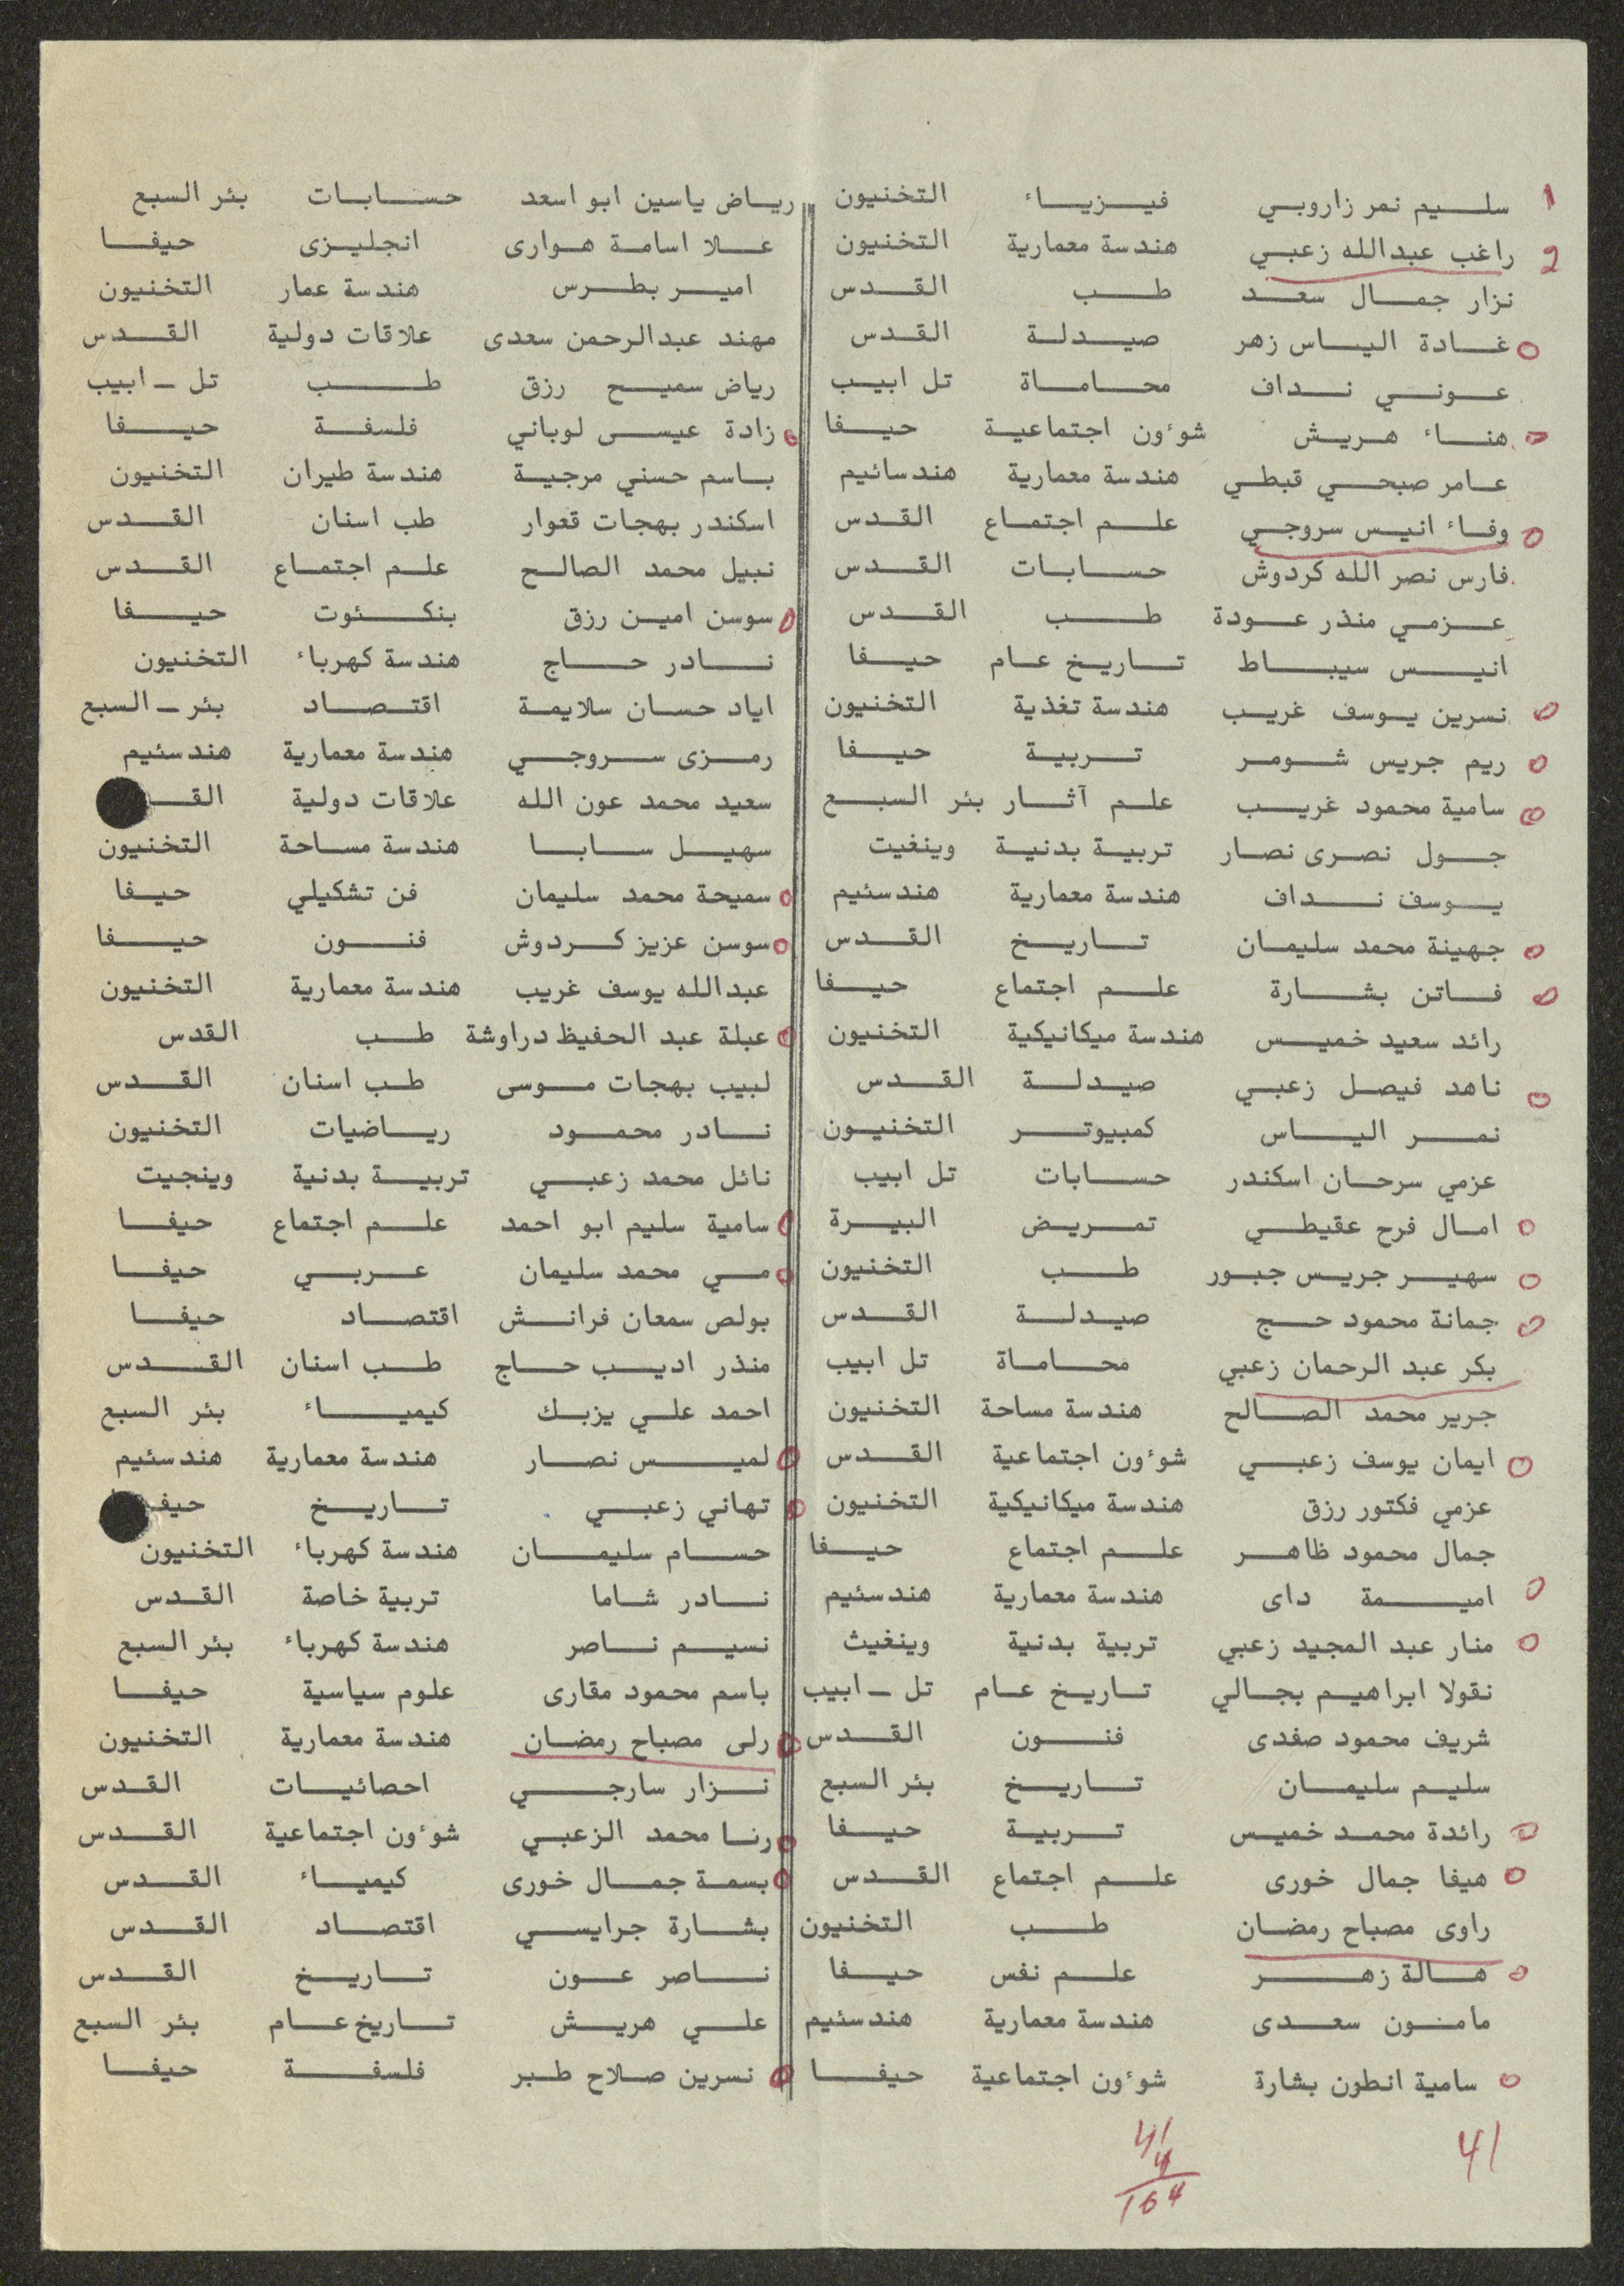 1 سليم نمر زاروبي فيزياء التخنيون
2 راغب عبدالله زعبي هندسة معمارية التخنيون
نزار جمال سعد طب القدس
غادة الياس زهر صيدلة القدس
عوني نداف محاماة تل ابيب
هناء هريش شوءون اجتماعية حيفا
عامر صبحي قبطي هندسة معمارية هندسائيم
وفاء انيس سروجي علم اجتماع القدس
فارس نصر الله كردوش حسابات القدس
عزمي منذر عودة طب القدس
انيس سيباط تاريخ عام حيفا
نسرين يوسف غريب هندسة تغذية التخنيون
ريم جريس شومر تربية حيفا
سامية محمود غريب علم آثار بئر السبع
جول نصرى نصار تربية بدنية وينغيت
يوسف نداف هندسة معمارية هندسئيم
جهينة محمد سليمان تاريخ القدس
فاتن بشارة علم اجتماع حيفا
رائد سعيد خميس هندسة ميكانيكية التخنيون
ناهد فيصل زعبي صيدلة القدس
نمر الياس كمبيوتر التخنيون
عزمي سرحان اسكندر حسابات تل ابيب
امال فرح عقيطي تمريض البيرة
سهير جريس جبور طب التخنيون
جمانة محمود حج صيدلة القدس
بكر عبد الرحمان زعبي محاماة تل ابيب
جرير محمد الصالح هندسة مساحة التخنيون
ايمان يوسف زعبي شوءون اجتماعية القدس
عزمي فكتور رزق هندسة ميكانيكية التخنيون
جمال محمود ظاهر علم اجتماع حيفا
اميمة داى هندسة معمارية هندسئيم
منار عبد المجيد زعبي تربية بدنية وينغيث
نقولا ابراهيم بجالي تاريخ عام تل - ابيب
شريف محمود صفدى فنون القدس
سليم سليمان تاريخ بئر السبع
رائدة محمد خميس تربية حيفا
هيفا جمال خورى علم اجتماع القدس
راوى مصباح رمضان طب التخنيون
هالة زهر علم نفس حيفا
مامنون سعدى هندسة معمارية هندسئيم
سامية انطون بشارة شوءون اجتماعية حيفا
41
41
4
164
رياض ياسين ابو اسعد حسابات بئر السبع
علا اسامة هوارى انجليزى حيفا
امير بطرس هندسة عمار التخنيون
مهند عبدالرحمن سعدى علاقات دولية القدس
رياض سميح رزق طب تل - ابيب
زادة عيسى لوباني فلسفة حيفا
باسم حسني مرجية هندسة طيران التخنيون
اسكندر بهجات قعوار طب اسنان القدس
نبيل محمد الصالح علم اجتماع القدس
سوسن امين رزق بنكئوت حيفا
نادر حاج هندسة كهرباء التخنيون
اياد حسان سلايمة اقتصاد بئر - السبع
رمزى سروجي هندسة معمارية هندسئيم
سعيد محمد عون الله علاقات دولية
سهيل سابا هندسة مساحة التخنيون
سميحة محمد سليمان فن تشكيلي حيفا
سوسن عزيز كردوش فنون حيفا
عبدالله يوسف غريب هندسة معمارية التخنيون
عبلة عبد الحفيظ دراوشة طب القدس
لبيب بهجات موسى طب اسنان القدس
نادر محمود رياضيات التخنيون
نائل محمد زعبي تربية بدنية وينجيت
سامية سليم ابو احمد علم اجتماع حيفا
مي محمد سليمان عربي حيفا
بولص سمعان فرانش اقتصاد حيفا
منذر اديب حاج طب اسنان القدس
احمد علي يزبك كيمياء بئر السبع
لميس نصار هندسة معمارية هندسئيم
تهاني زعبي تاريخ حيفا
حسام سليمان هندسة كهرباء التخنيون
نادر شاما تربية خاصة القدس
نسيم ناصر هندسة كهرباء بئر السبع
باسم محمود مقارى علوم سياسية حيفا
رلى مصباح رمضان هندسة معمارية التخنيون
نزار سارجي احصائيات القدس
رنا محمد الزعبي شوءون اجتماعية القدس
بسمة جمال خورى كيمياء القدس
بشارة جرايسي اقتصاد القدس
ناصر عون تاريخ القدس
علي هريش تاريخ عام بئر السبع
نسرين صلاح طبر فلسفة حيفا